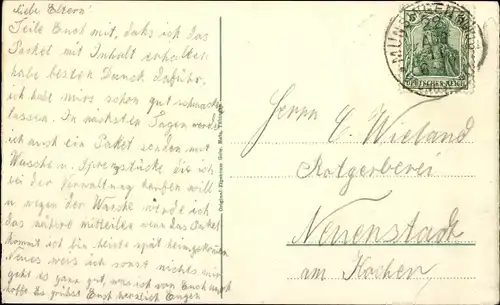 Liebe Eltern!
Teile Euch mit, dass ich das
Packet mit Inhalt erhalten
habe besten Danck dafuhr,
ich habe mirs schon gut schmecken
lassen. In nächsten Tagen werde
ich auch ein Paket senden mit
Wäsche u. die ich
bei der Verwaltung kaufen will
u. wegen der Wäsche werde ich
das nähere mitteilen wenn das Paket
kommt ich bin heute spät heimgekommen
Neues weis ich sonst nichts mir
geht es ganz gut, was ich von Euch auch
hoffe Es grüsst Euch herzlich Eugen
MÜNSINGEN
DEUTSCHES REICH
Herrn C. Wieland
Rotgerberei
Neuenstadt
am Kochen